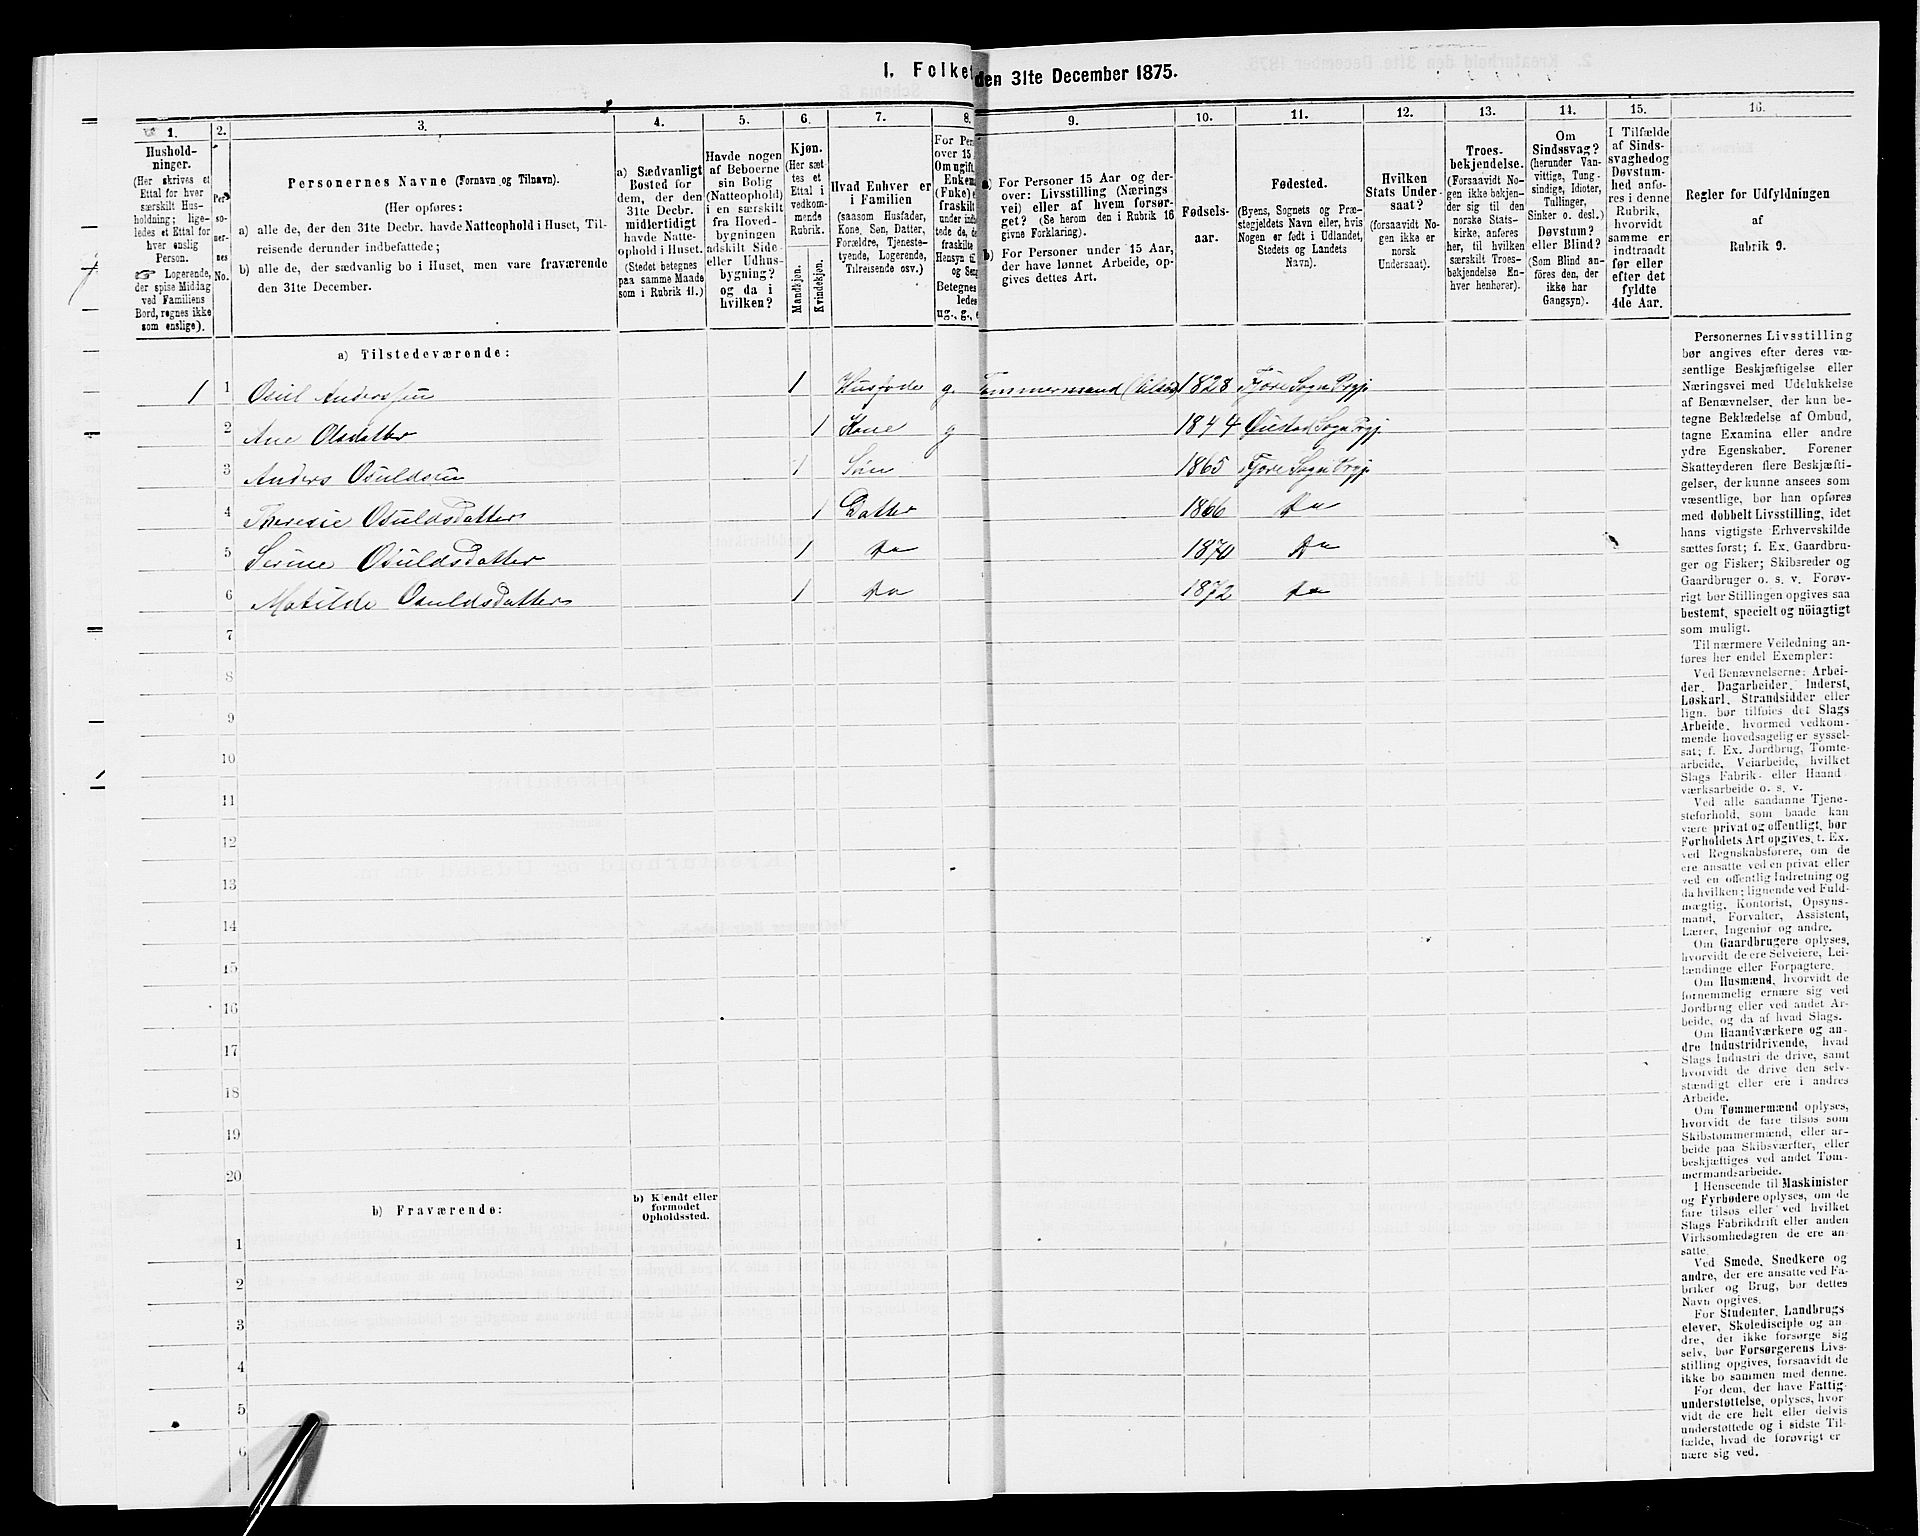 I. Folket
den 31te December 1875.
1.
2.
3.
4.
5.
6.
7.
8.
9.
10.
11.
12.
13.
14.
15.
16.
Hushold-
ninger.
(Her skrives et
Ettal for hver
særskilt Hus-
holdning; lige-
ledes et Ettal for
hver enslig
Person.
☞ Logerende,
der spise Middag
ved Familiens
Bord, regnes ikke
som enslige).
Per-
so-
ner-
nes
No.
Personernes Navne (Fornavn og Tilnavn).
(Her opføres:
a) alle de, der den 31te Decbr. havde Natteophold i Huset, Til-
reisende derunder indbefattede;
b) alle de, der sædvanlig bo i Huset, men vare fraværende
den 31te December.
a) Sædvanligt
Bosted for
dem, der den
31te Decbr.
midlertidigt
havde Natte-
ophold i Huset.
(Stedet betegnes
paa samme Maade
som i Rubrik 11.)
Havde nogen
af Beboerne
sin Bolig
(Natteophold)
i en særskilt
fra Hoved-
bygningen
adskilt Side-
eller Udhus-
bygning?
og da i
hvilken?
Kjøn.
(Her sæt-
tes et
Ettal i
vedkom-
mende
Rubrik.
Mandkjøn.
Kvindekjøn.
Hvad Enhver er
i Familien
(saasom Husfader,
Kone, Søn, Datter,
Forældre, Tjeneste-
tyende, Logerende,
Tilreisende osv.)
For Per
over 15
Om ugift,
Enkem
(Enke)
fraskilt
under indb
tede de,
fraskilte
Hensyn til
og Sen
Betegnes
ledes
ug., g., e
a) For Personer 15 Aar og der-
over: Livsstilling (Nærings
vei) eller af hvem forsør-
get? (Se herom den i Rubrik 16
givne Forklaring).
b) For Personer under 15 Aar,
der have lønnet Arbeide, op-
gives dettes Art.
Fødsels-
aar.
Fødested.
(Byens, Sognets og Præ-
stegjeldets Navn eller, hvis
Nogen er født i Udlandet,
Stedets og Landets
Navn).
Hvilken
Stats Under-
saat?
(forsaavidt No-
gen ikke er
norsk
Undersaat).
Troes-
bekjendelse.
(Forsaavidt No-
gen ikke bekjen-
der sig til den
norske Stats-
kirke, anføres
her, til hvilken
særskilt Troes-
bekjendelse En-
hver henhører).
Om
Sindssvag?
(herunder Van-
vittige, Tung-
sindige, Idioter,
Tullinger,
Sinker o. desl.)
Døvstum?
eller Blind?
(Som Blind an-
føres den, der
ikke har
Gangsyn).
I Tilfælde
af Sinds-
svaghed og
Døvstum-
hed anfø-
res i denne
Rubrik,
hvorvidt
samme er
indtraadt
før eller
efter det
fyldte
4de Aar.
Regler for Udfyldningen
af
Rubrik 9.
a) Tilstedeværende:
1 1 Osul Anderssen 1 Husfade g. Tømmermand 1828 Fjære Sogn Prgj.
2 Ane Olsdatter 1 Kone g 1844 Øiestad Sogn Prgj.
3 Anders Osuldsen 1 Søn 1865 Fjære Sogn Prgj.
4 Theresie Osuldsdatter 1 Datter 1866 Do
5 Serine Osuldsdatter 1 Do 1870 Do
6 Matilde Osuldsdatter 1 Do 1872 Do
7
8
9
10
11
12
13
14
15
16
17
18
19
20
b) Fraværende:
b) Kjendt eller
formodet
Opholdssted.
1
2
3
4
5
6
Personernes Livsstilling
bør angives efter deres væ-
sentlige Beskjæftigelse eller
Næringsvei med Udelukkelse
af Benævnelser, der kun be-
tegne Beklædelse af Ombud,
tagne Examina eller andre
ydre Egenskaber. Forener
Skatteyderen flere Beskjæfti-
gelser, der kunne ansees som
væsentlige, bør han opføres
med dobbelt Livsstilling, idet
hans vigtigste Erhvervskilde
sættes først; f. Ex. Gaardbru-
ger og Fisker; Skibsreder og
Gaardbruger o. s. v. Forøv-
rigt bør Stillingen opgives saa
bestemt, specielt og nöiagtigt
som muligt.
Til nærmere Veiledning an-
føres her endel Exempler:
Ved Benævnelserne: Arbei-
der, Dagarbeider, Inderst,
Løskarl, Strandsidder eller
lign. bør tilføies det Slags
Arbeide, hvormed vedkom-
mende hovedsagelig er syssel-
sat; f. Ex. Jordbrug, Tomte-
arbeide, Veiarbeide, hvilket
Slags Fabrik- eller Haand-
værksarbeide o. s. v.
Ved alle saadanne Tjene-
steforhold, som baade kan
være privat og offentligt, bør
Forholdets Art opgives, t. Ex.
ved Regnskabsførere, om de
ere ansatte ved en privat eller
ved en offentlig Indretning og
da hvilken; lignende ved Fuld-
mægtig, Kontorist, Opsyns-
mand, Forvalter, Assistent,
Lærer, Ingeniør og andre.
Om Gaardbrugere oplyses,
hvorvidt de ere Selveiere, Lei-
lændinge eller Forpagtere.
Om Husmænd, hvorvidt de
fornemmelig ernære sig ved
Jordbrug eller ved andet Ar-
beide, og da af hvad Slags.
Om Haandværkere og an-
dre Industridrivende, hvad
Slags Industri de drive, samt
hvorvidt de drive den selv-
stændigt eller ere i andres
Arbeide.
Om Tømmermænd oplyses,
hvorvidt de fare tilsøs som
Skibstømmermænd, eller ar-
beide paa Skibsværfter, eller
beskjæftiges ved andet Tøm-
mermandsarbeide.
I Henseende til Maskinister
og Fyrbødere oplyses, om de
fare tilsøs eller ved hvilket
Slags Fabrikdrift eller anden
Virksomhedsgren de ere an-
satte.
Ved Smede, Snedkere og
andre, der ere ansatte ved Fa-
briker og Brug, bør dettes
Navn opgives.
For Studenter, Landbrugs
elever, Skoledisciple og an-
dre, der ikke forsørge sig
selv, bør Forsørgerens Livs-
stilling opgives, forsaavidt de
ikke bo sammen med denne.
For dem, der have Fattig-
understøttelse, oplyses, hvor-
vidt de ere helt eller delvis
understøttede og i sidste Til-
fælde, hvad de forøvrigt er
nære sig ved.